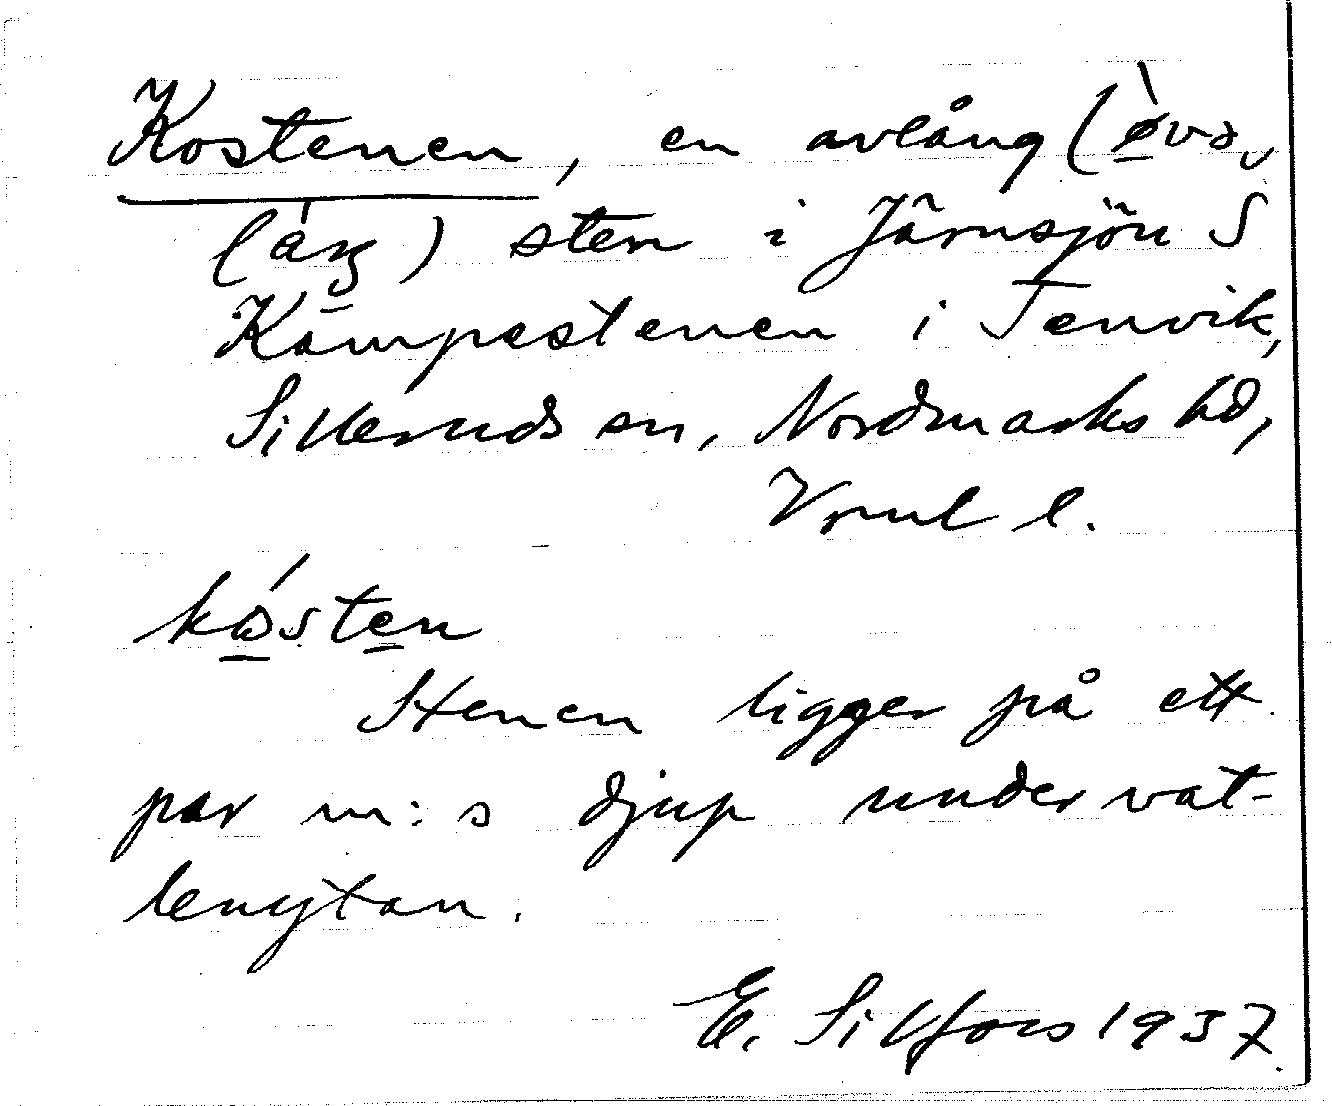 Kostenen, en avlång (
sten i Järnsjön S
Kämpestenen i Tenvik,
Silleruds sn, Nordmarks hd,
Vrml l.
kosten
Stenen ligger på ett
par m:s djup under vat-
tenytan.
E. Silfors 1937.